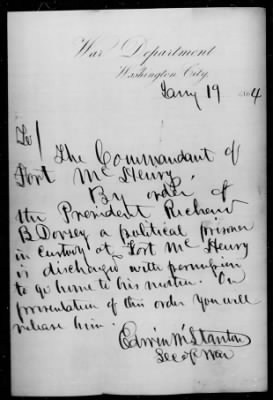 War Department
Washington City,
Jany 19 1864
To/
The Commandant of
Fort McHenry
By order of
the President Richard
B Dorsey a political prisoner
in custody at Fort Mc Henry
is discharged with permission
to go home to his
On
presentation of this order you will
release him.
Edwin M Stanton
Sec of War